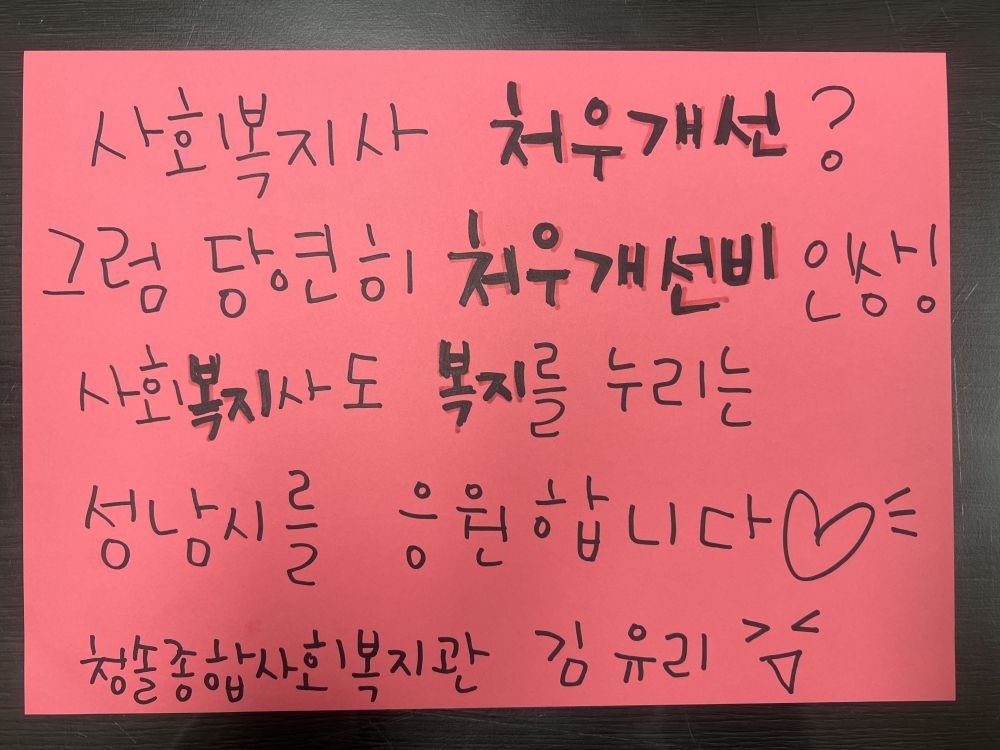 사회복지사 처우개선?
그럼 당연히 처우개선비 인상!
사회복지사도 복지를 누리는
성남시를 응원합니다♡
청솔종합사회복지관 김유리